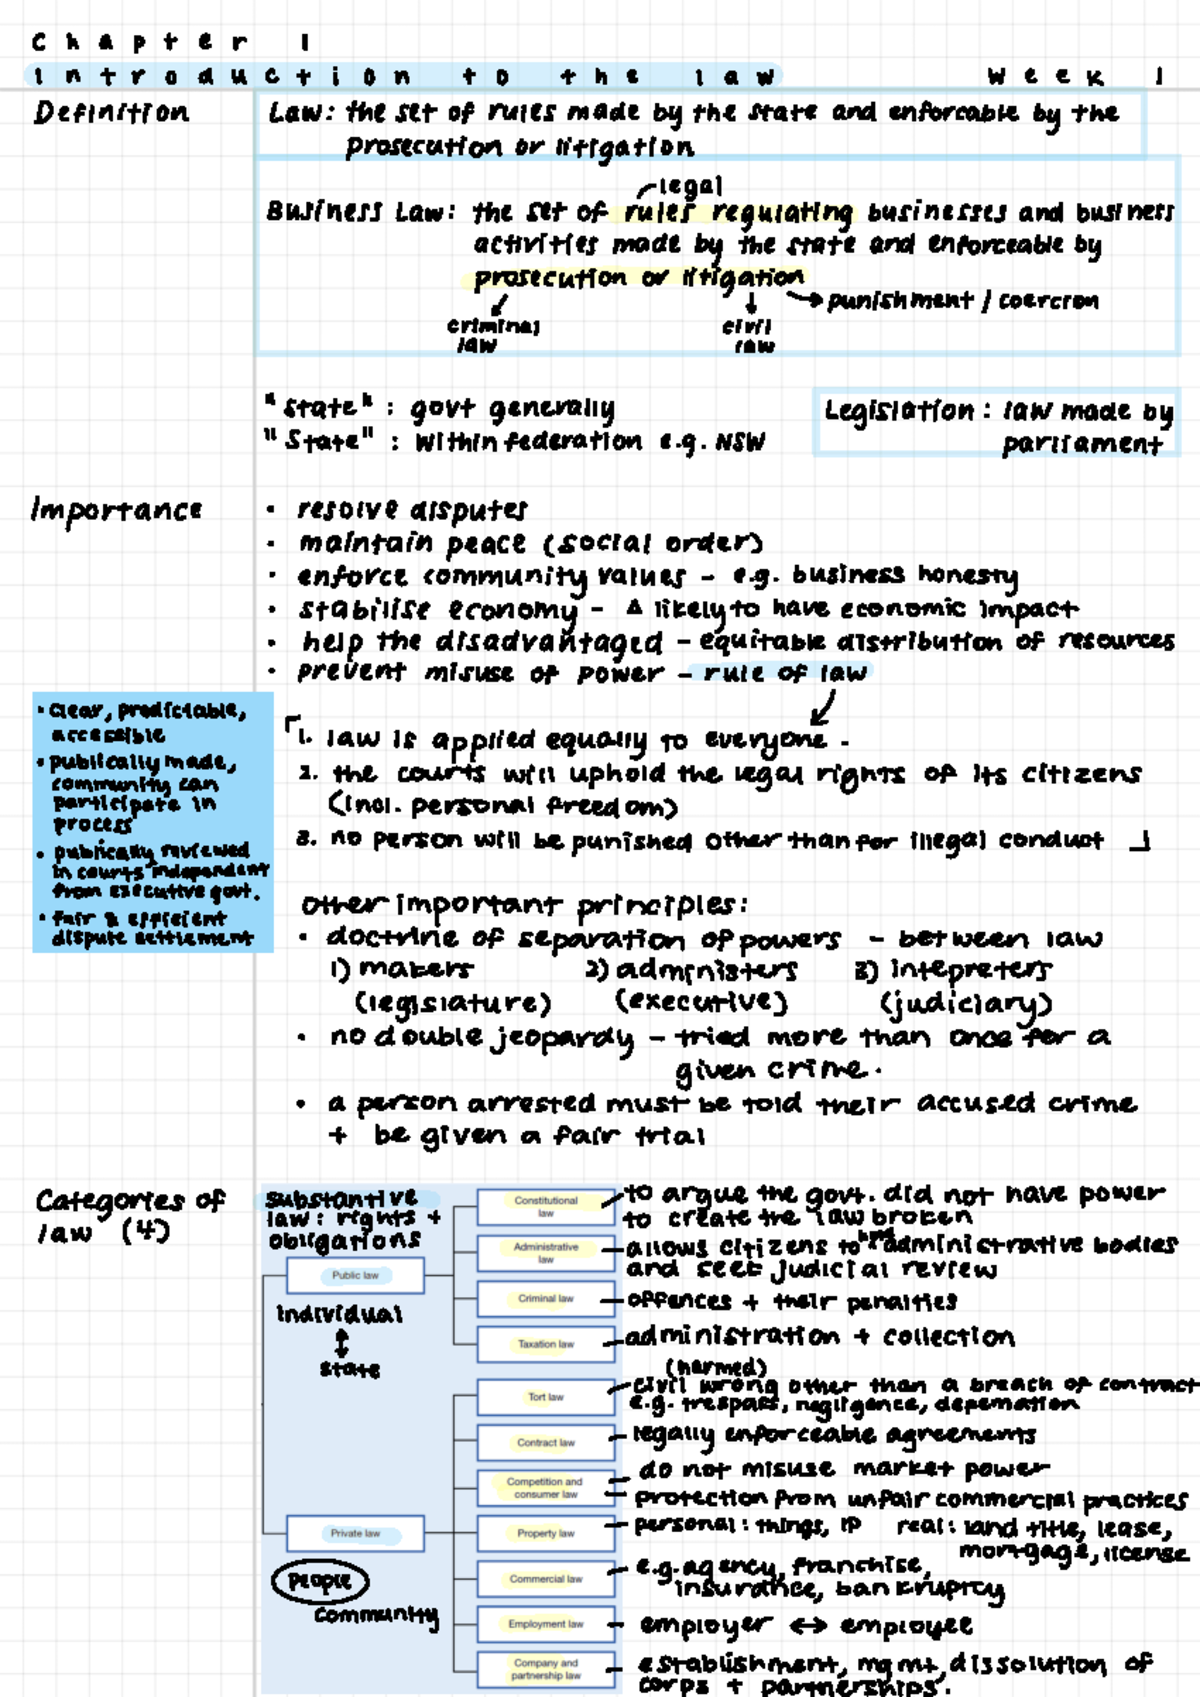 Chapter 1
Introduction to the law Week 1
Definition
Law: the set of rules made by the state and enforcable by the
prosecution or litigation
legal
Business Law: the set of rules regulating businesses and business
activities made by the state and enforceable by
prosecution or litigation
punishment / coercion
criminal law
civil law
"state" : govt generally
"State" : within federation e.g. NSW
Legislation : law made by
parliament
Importance
• resolve disputes
• maintain peace (social order)
• enforce community values - e.g. business honesty
• stabilise economy - Δ likely to have economic impact
• help the disadvantaged - equitable distribution of resources
• prevent misuse of power - rule of law
• clear, predictable,
accessible
• publically made,
community can
participate in
process
• publically reviewed
in courts independent
from executive govt.
• fair & efficient
dispute settlement
1. law is applied equally to everyone.
2. the courts will uphold the legal rights of its citizens
(incl. personal freedom)
3. no person will be punished other than for illegal conduct
other important principles:
• doctrine of separation of powers - between law
1) makers 2) administers 3) intepreters
(legislature) (executive) (judiciary)
• no double jeopardy - tried more than once for a
given crime.
• a person arrested must be told their accused crime
+ be given a fair trial
Categories of
law (4)
substantive
law: rights +
obligations
Public law
individual
↕
state
Constitutional
law
to argue the govt. did not have power
to create the law broken
Administrative
law
allows citizens to administrative bodies
and seek judicial review
Criminal law
offences + their penalties
Taxation law
administration + collection
Tort law
(harmed)
civil wrong other than a breach of contract
e.g. trespass, negligence, defemation
Contract law
legally enforceable agreements
Competition and
consumer law
do not misuse market power
protection from unfair commercial practices
Private law
people
community
Property law
personal: things, IP real: land title, lease,
mortgage, license
Commercial law
e.g. agency, franchise,
insurance, bankruptcy
Employment law
employer ↔ employee
Company and
partnership law
establishment, mgmt, dissolution of
corps + partnerships.